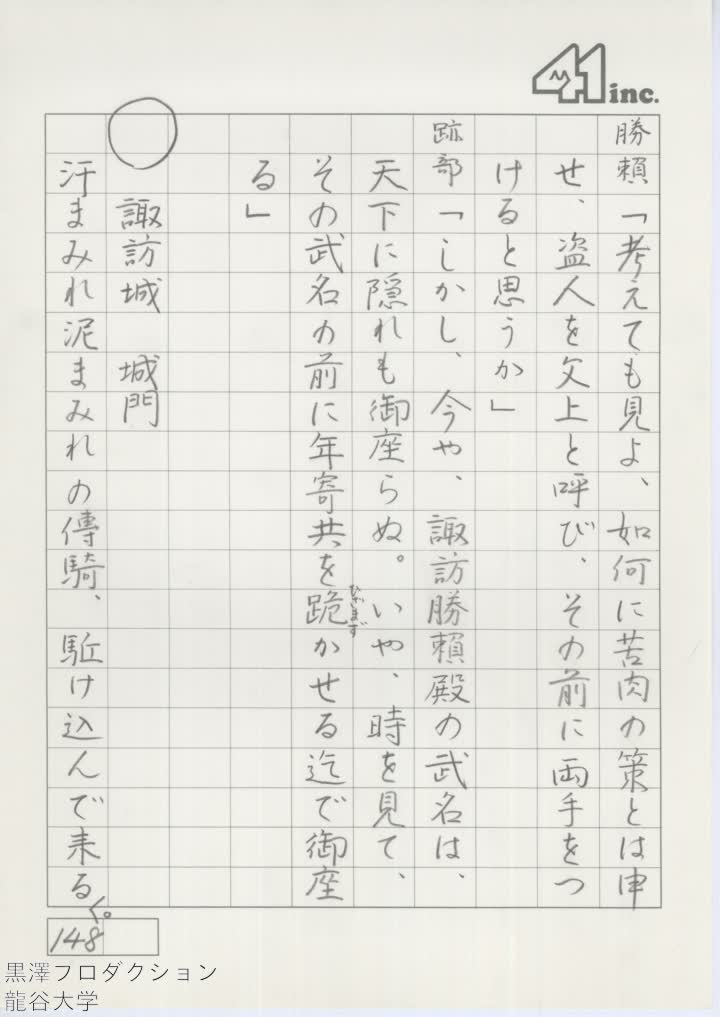 41 inc.
勝頼「考えても見よ、如何に苦肉の策とは申
せ、盗人を父上と呼び、その前に両手をつ
けると思うか」
跡部「しかし、今や、諏訪勝頼殿の武名は、
天下に隠れも御座らぬ。いや、時を見て、
その武名の前に年寄共を跪かせる迄で御座
ひざまず
る」
○ 諏訪城 城門
汗まみれ泥まみれの傳騎、駈け込んで来る。
148
黒澤フロダクション
龍谷大学